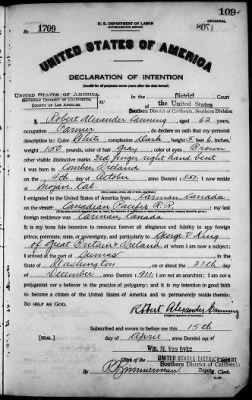 109
U. S. DEPARTMENT OF LABOR
NATURALIZATION SERVICE
ORIGINAL
No. 1709
UNITED STATES OF AMERICA
DECLARATION OF INTENTION
(Invalid for all purposes seven years after the date hereof)
UNITED STATES OF AMERICA
SOUTHERN DISTRICT OF CALIFORNIA, ss:
COUNTY OF LOS ANGELES
In the District Court
of the United States
Southern District of California, Southern Division
I, Robert Alexander Canning, aged 62 years,
occupation Farmer, do declare on oath that my personal
description is: Color White, complexion Dark, height 5 feet 6 inches,
weight 150 pounds, color of hair Gray, color of eyes Brown
other visible distinctive marks 3rd finger right hand bent
I was born in Comber, Ireland
on the 4th day of October, anno Domini 1851; I now reside
at Mojave, Cal.
I emigrated to the United States of America from Carman, Canada
on the vessel Canadian Pacific R.R.; my last
foreign residence was Carman, Canada.
It is my bona fide intention to renounce forever all allegiance and fidelity to any foreign
prince, potentate, state, or sovereignty, and particularly to George V, King
of Great Britain & Ireland, of whom I am now a subject; I
arrived at the port of Sumas, in the
State of Washington on or about the 27th day
of December, anno Domini 1911; I am not an anarchist; I am not a
polygamist nor a believer in the practice of polygamy; and it is my intention in good faith
to become a citizen of the United States of America and to permanently reside therein:
SO HELP ME GOD.
Robert Alexander Canning
Subscribed and sworn to before me this 15th
[SEAL.] day of April, anno Domini 1914
Wm. M. Van Dyke
Clerk of the UNITED STATES DISTRICT COURT
Southern District of California
By R. Zimmerman Deputy Clerk.